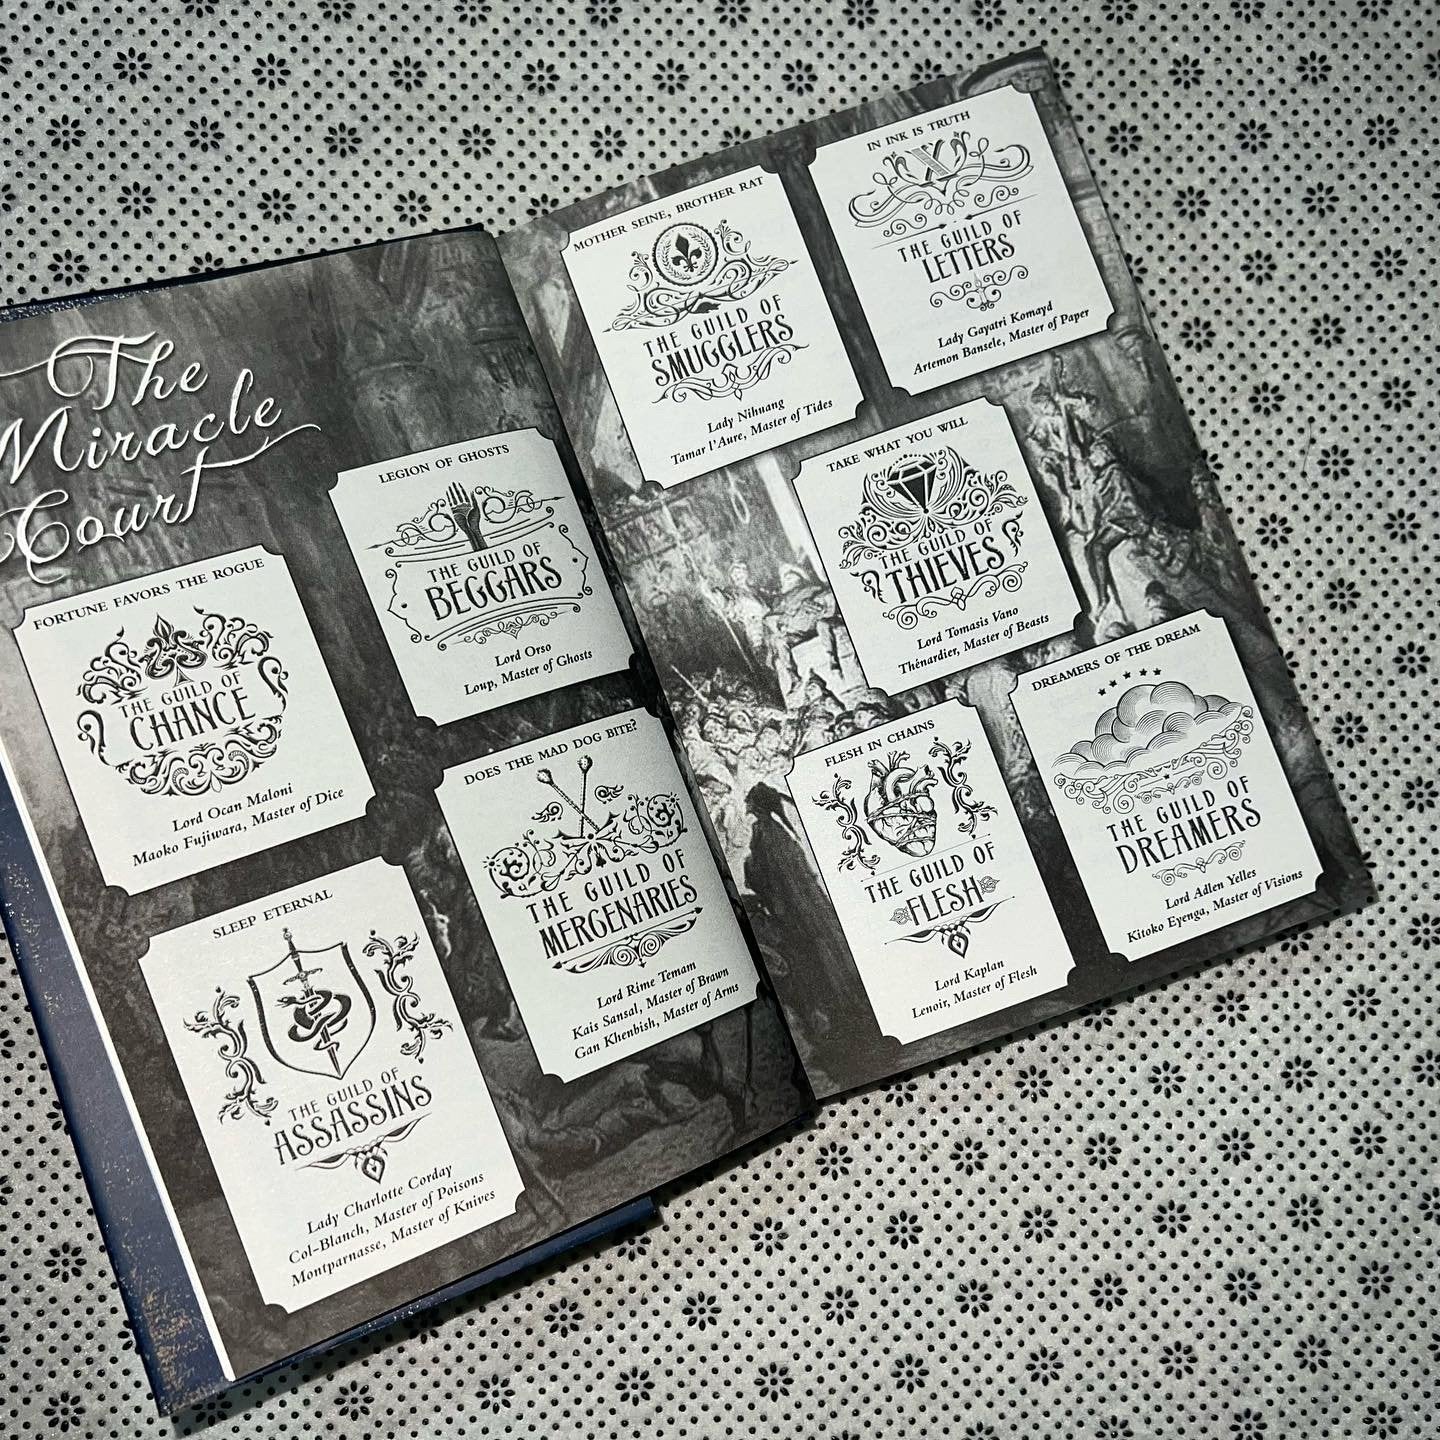 The
Miracle
Court
FORTUNE FAVORS THE ROGUE
THE GUILD OF
CHANCE
Lord Ocan Maloni
Maoko Fujiwara, Master of Dice
LEGION OF GHOSTS
THE GUILD OF
BEGGARS
Lord Orso
Loup, Master of Ghosts
SLEEP ETERNAL
THE GUILD OF
ASSASSINS
Lady Charlotte Corday
Col-Blanch, Master of Poisons
Montparnasse, Master of Knives
DOES THE MAD DOG BITE?
THE GUILD OF
MERCENARIES
Lord Rime Temam
Kais Sansal, Master of Brawn
Gan Khenbish, Master of Arms
MOTHER SEINE, BROTHER RAT
THE GUILD OF
SMUGGLERS
Lady Nihuang
Tamar l'Aure, Master of Tides
IN INK IS TRUTH
X
THE GUILD OF
LETTERS
Lady Gayatri Komayd
Artemon Bansele, Master of Paper
TAKE WHAT YOU WILL
THE GUILD OF
THIEVES
Lord Tomasis Vano
Thénardier, Master of Beasts
FLESH IN CHAINS
THE GUILD OF
FLESH
Lord Kaplan
Lenoir, Master of Flesh
DREAMERS OF THE DREAM
THE GUILD OF
DREAMERS
Lord Adlen Yelles
Kitoko Eyenga, Master of Visions